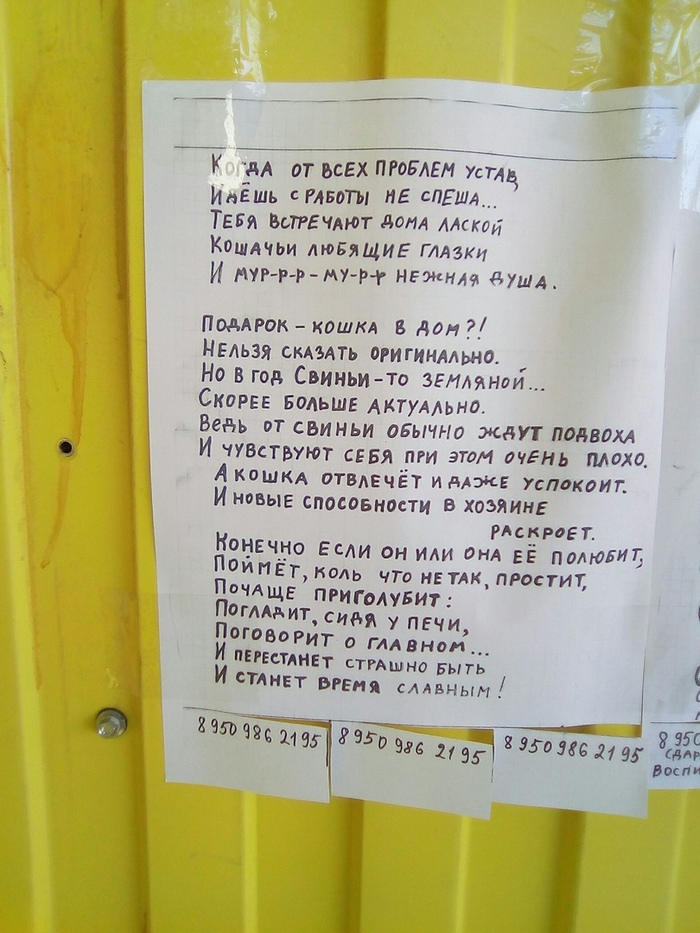 Когда от всех проблем устав
Идёшь с работы не спеша...
Тебя встречают дома лаской
Кошачьи любящие глазки
И мур-р-р-му-р-р нежная душа.
Подарок - кошка в дом?!
Нельзя сказать оригинально.
Но в год Свиньи-то земляной...
Скорее больше актуально.
Ведь от свиньи обычно ждут подвоха
И чувствуют себя при этом очень плохо.
А кошка отвлечёт и даже успокоит.
И новые способности в хозяине
раскроет.
Конечно если он или она её полюбит,
Поймёт, коль что не так, простит,
Почаще приголубит:
Погладит, сидя у печи,
Поговорит о главном...
И перестанет страшно быть
И станет время славным!
8 950 986 21 95
8 950 986 21 95
8 950 986 21 95
8 950